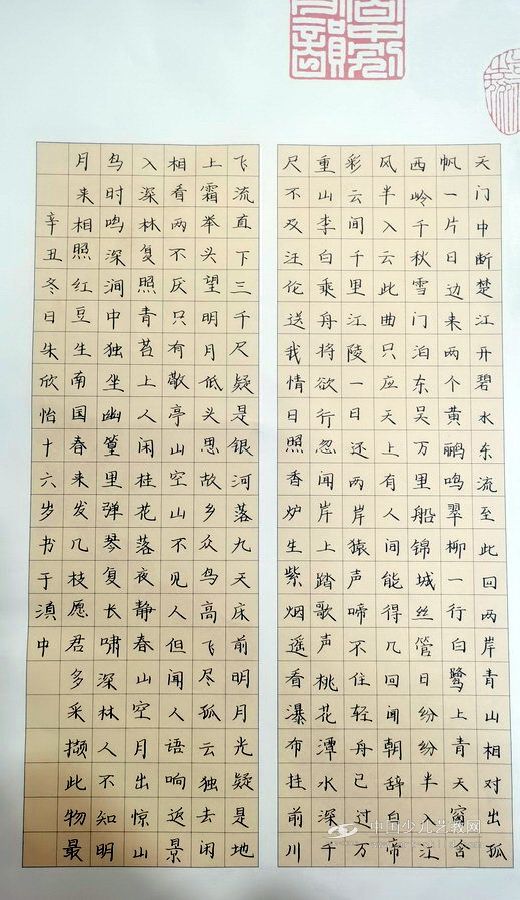 天门中断楚江开碧水东流至此回两岸青山相对出孤
帆一片日边来两个黄鹂鸣翠柳一行白鹭上青天窗含
西岭千秋雪门泊东吴万里船锦城丝管日纷纷半入江
风半入云此曲只应天上有人间能得几回闻朝辞白帝
彩云间千里江陵一日还两岸猿声啼不住轻舟已过万
重山李白乘舟将欲行忽闻岸上踏歌声桃花潭水深千
尺不及汪伦送我情日照香炉生紫烟遥看瀑布挂前川
飞流直下三千尺疑是银河落九天床前明月光疑是地
上霜举头望明月低头思故乡众鸟高飞尽孤云独去闲
相看两不厌只有敬亭山空山不见人但闻人语响返景
入深林复照青苔上人闲桂花落夜静春山空月出惊山
鸟时鸣深涧中独坐幽篁里弹琴复长啸深林人不知明
月来相照红豆生南国春来发几枝愿君多采撷此物最
辛丑冬日朱欣怡十六岁书于滇中
中国少儿艺教网